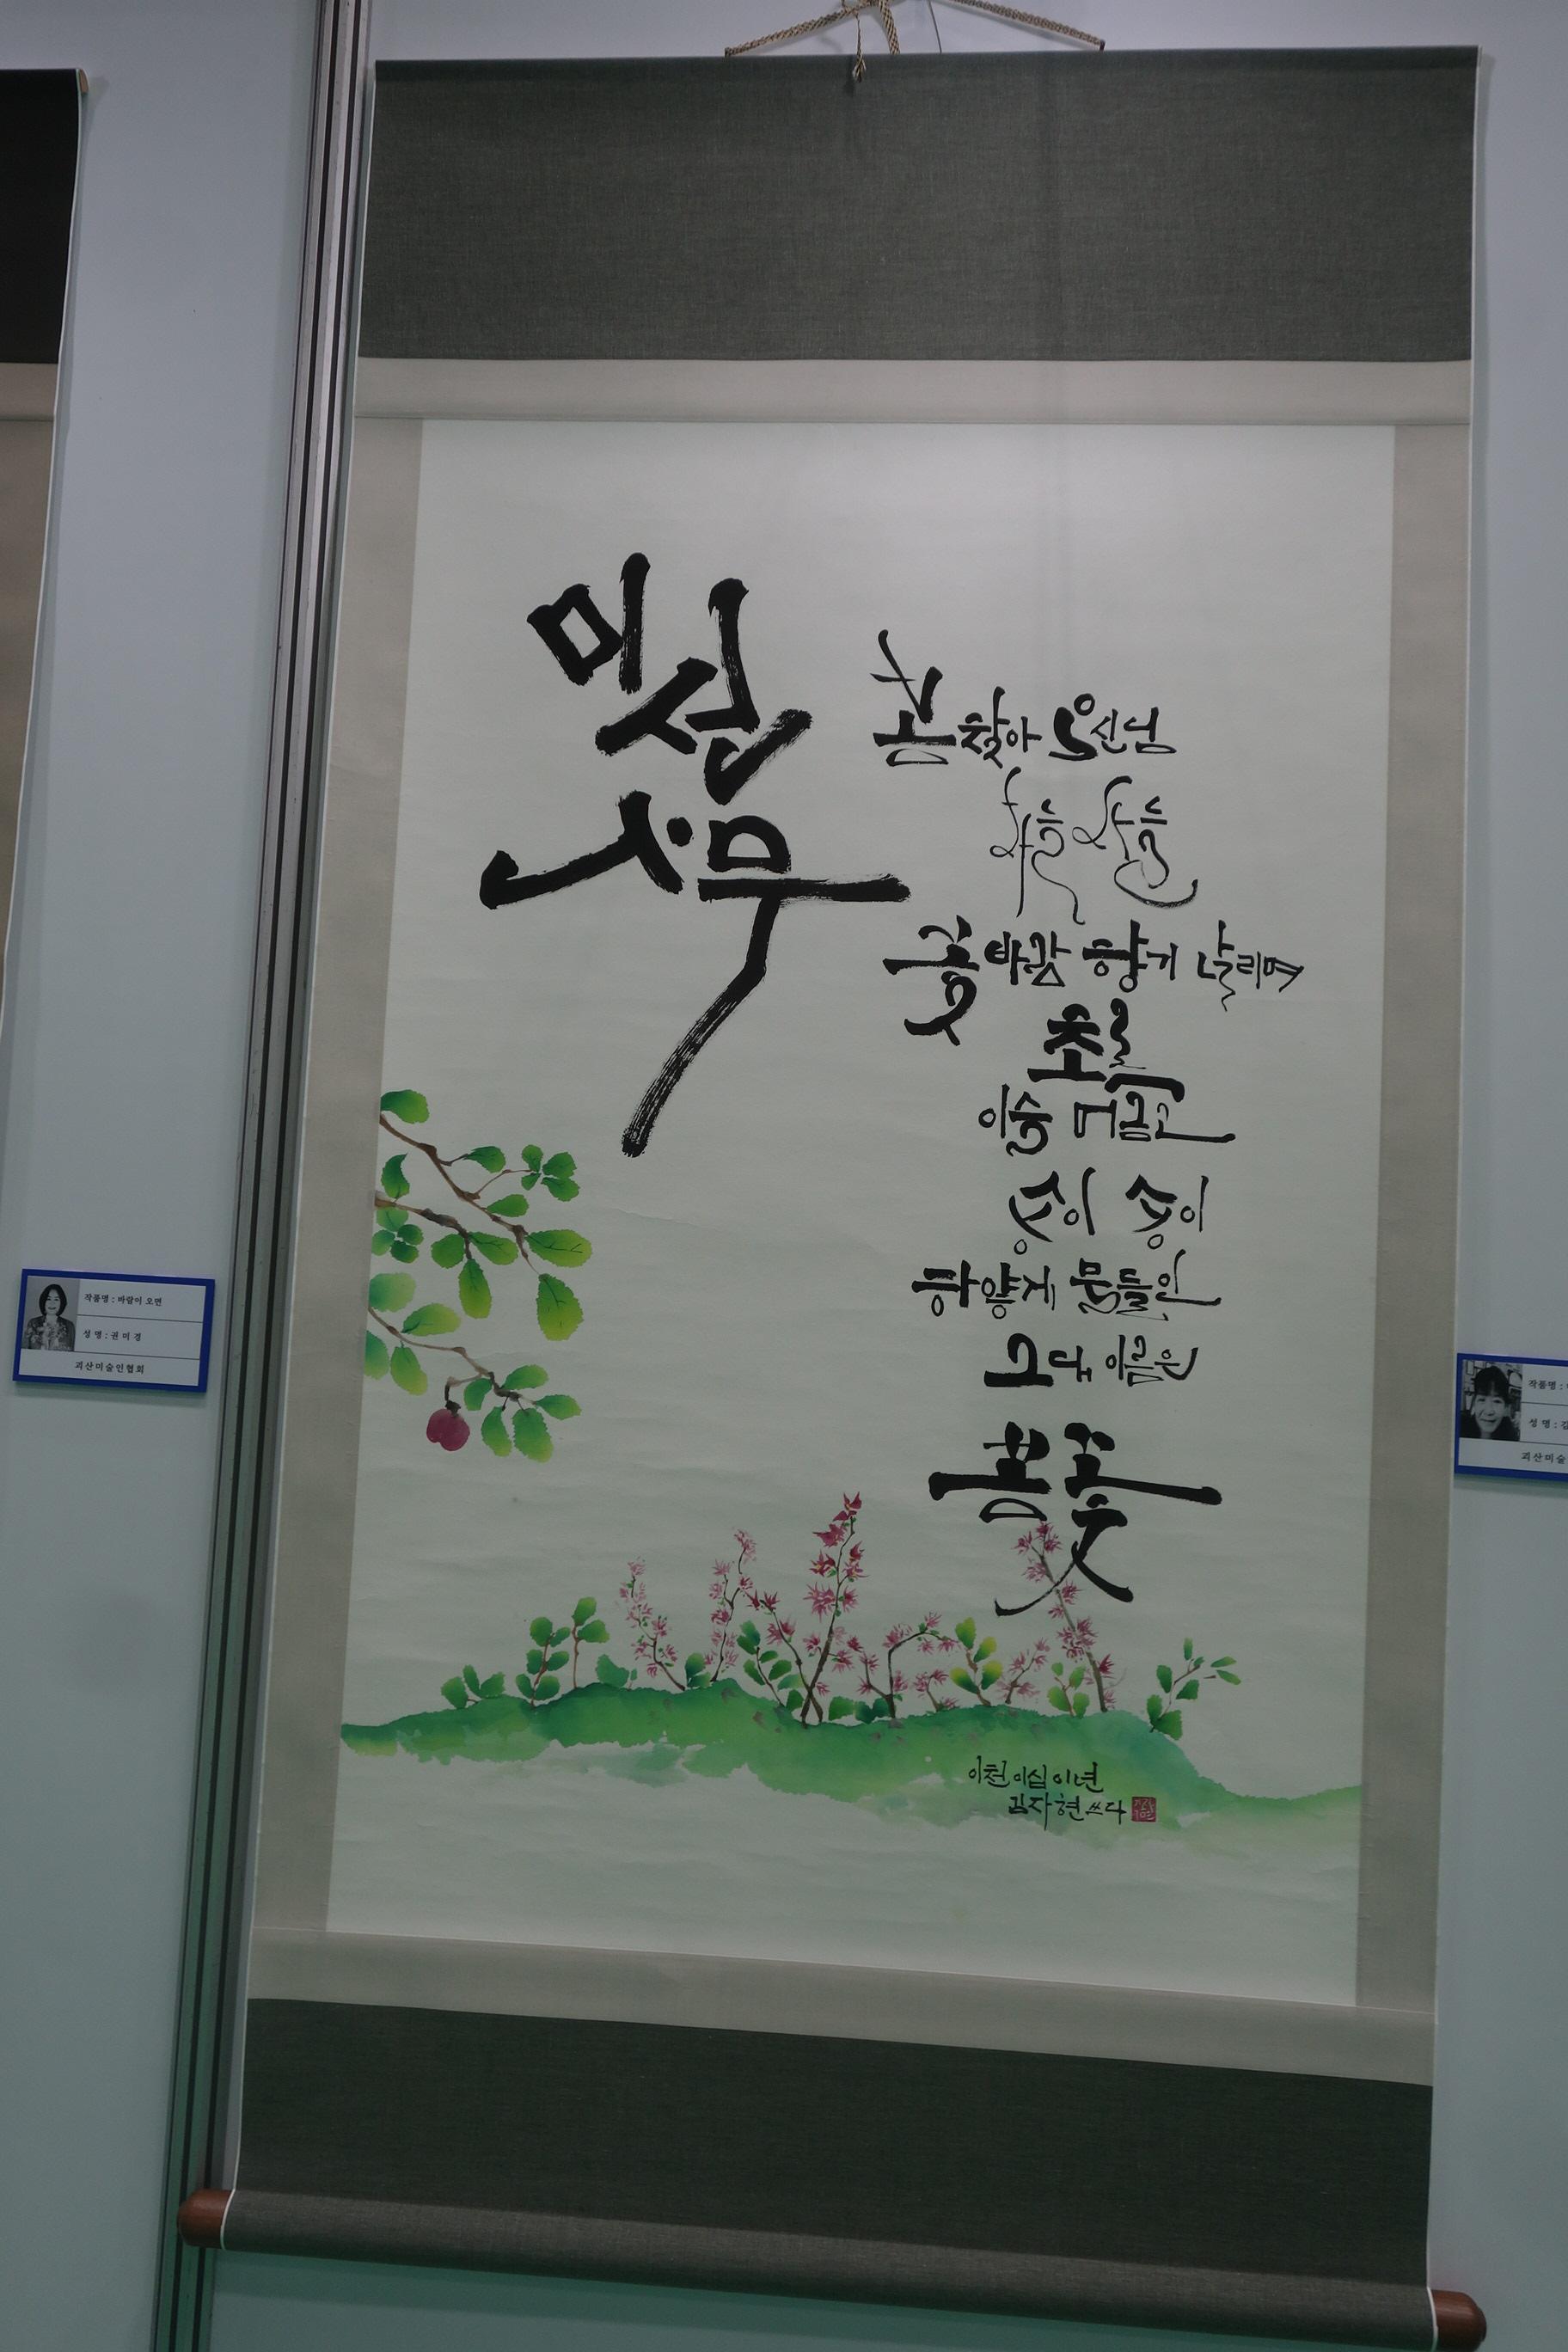 미선
나무
봄 찾아 오신님
하늘하늘
꽃바람 향기 날리며
초롱
이슬 머금고
송이 송이
하얗게 물들인
그대 이름은
봄꽃
이천이십이년
김자현 쓰다
작품명 : 바람이 오면
성 명 : 권 미 경
괴산미술인협회
작품명 :
성 명 : 김
괴산미술